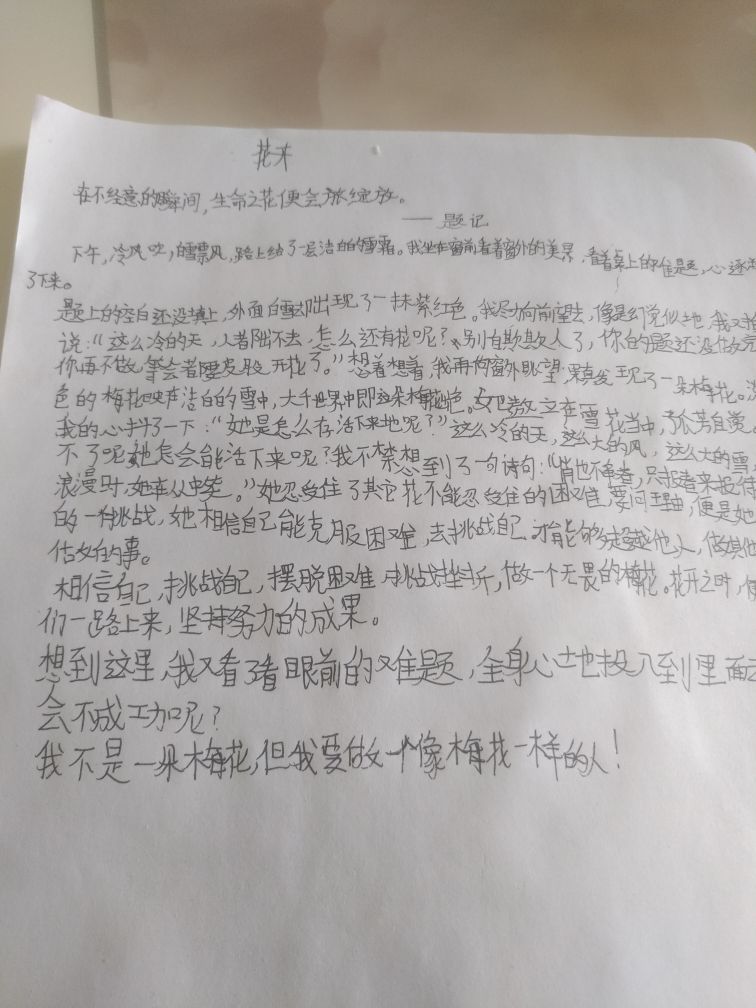 花开
在不经意的瞬间,生命之花便会旅绽放。
——题记
下午,冷风吹,雪飘风,路上结了一层洁白的雪霜。我坐在窗前看着窗外的美景,看着桌上的难题,心逐
了下来。
题上的空白还没填上,外面白雪却出现了一抹紫红色。我尽力向前望去,像是幻觉似地,我又
说:“这么冷的天,人者陆不去,怎么还有花呢?别自欺欺人了,你的题还没做完
你再不做,等会者腰发股开花了。”想着想着,我再向窗外眺望,果真发现了一朵梅花。
色的梅花映在洁白的雪中,大千世界中即这朵梅花绝色。她傲立在雪花当中,孤芳自赏。
我的心抖了一下:“她是怎么存活下来地呢?”这么冷的天,这么大的风,这么大的雪
不了呢她怎会能活下来呢?我不禁想到了一句诗句:“俏也不争春,只报春来报
浪漫时,她在丛中笑。”她忍受住了其它花不能忍受住的困难,要问理由,便是她
的一种挑战,她相信自己能克服困难,去挑战自己,才能够超越他人,做其他
估女在的事。
相信自己,挑战自己,摆脱困难,挑战挫折,做一个无畏的梅花。花开之时,便
们一路上来,坚持努力的成果。
想到这里,我又看了看眼前的难题,全身心地投入到里面
会不成功呢?
我不是一朵梅花,但我要做一个像梅花一样的人!